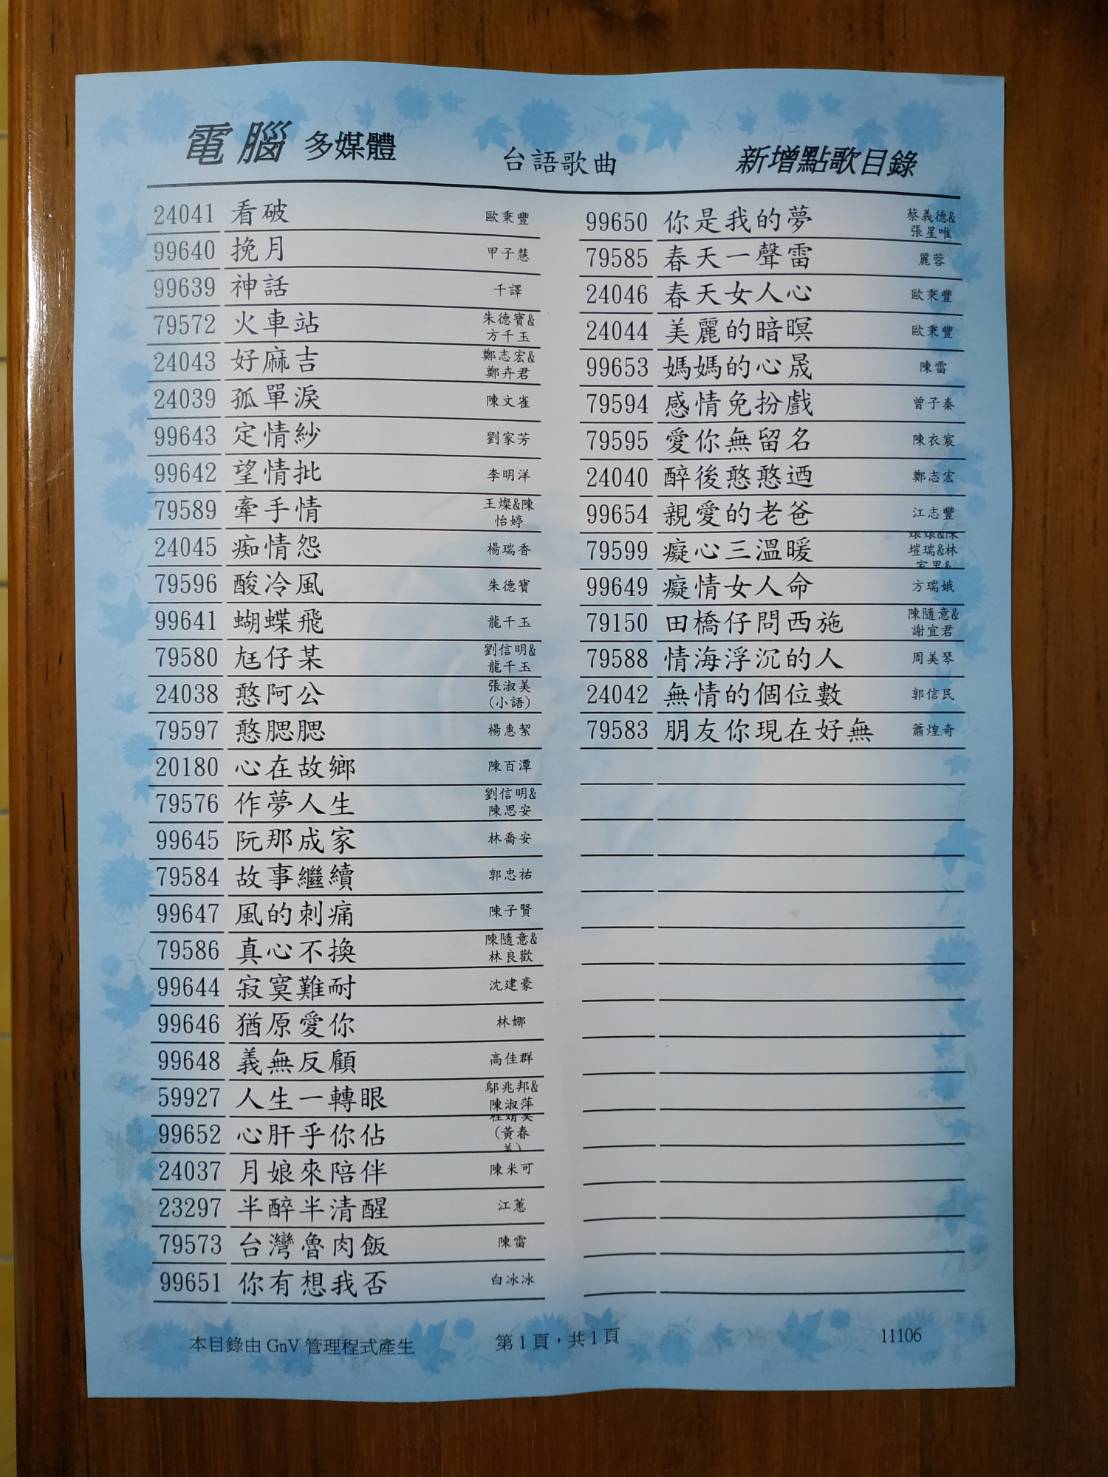 電腦 多媒體 台語歌曲 新增點歌目錄
24041 看破 歐秉豐
99640 挽月 甲子慧
99639 神話 千譯
79572 火車站 朱德寶&方千玉
24043 好麻吉 鄭志宏&鄭卉君
24039 孤單淚 陳文雀
99643 定情紗 劉家芳
99642 望情批 李明洋
79589 牽手情 王燦&陳怡婷
24045 痴情怨 楊瑞香
79596 酸冷風 朱德寶
99641 蝴蝶飛 龍千玉
79580 尪仔某 劉信明&龍千玉
24038 憨阿公 張淑美(小語)
79597 憨腮腮 楊惠絜
20180 心在故鄉 陳百潭
79576 作夢人生 劉信明&陳思安
99645 阮那成家 林喬安
79584 故事繼續 郭忠祐
99647 風的刺痛 陳子賢
79586 真心不換 陳隨意&林良歡
99644 寂寞難耐 沈建豪
99646 猶原愛你 林娜
99648 義無反顧 高佳群
59927 人生一轉眼 鄔兆邦&陳淑萍
99652 心肝乎你佔 (黃春
24037 月娘來陪伴 陳米可
23297 半醉半清醒 江蕙
79573 台灣魯肉飯 陳雷
99651 你有想我否 白冰冰
99650 你是我的夢 蔡義德&張星唯
79585 春天一聲雷 麗蓉
24046 春天女人心 歐秉豐
24044 美麗的暗暝 歐秉豐
99653 媽媽的心晟 陳雷
79594 感情免扮戲 曾子秦
79595 愛你無留名 陳衣宸
24040 醉後憨憨迺 鄭志宏
99654 親愛的老爸 江志豐
79599 癡心三溫暖 塏瑞&林
99649 癡情女人命 方瑞娥
79150 田橋仔問西施 陳隨意&謝宜君
79588 情海浮沉的人 周美琴
24042 無情的個位數 郭信民
79583 朋友你現在好無 蕭煌奇
本目錄由 GnV 管理程式產生 第1頁，共1頁 11106